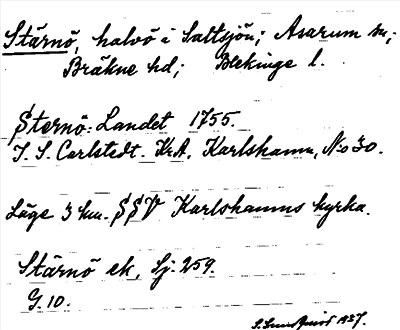 Stärnö, halvö i Saltsjön; Asarum sn;
Bräkne hd; Blekinge l.
Sternö-Landet 1755.
J. S. Carlstedt. Kr.A. Karlshamn, No 30.
Läge 3 km. SSV Karlshamns kyrka.
Stärnö ek, Sj. 259.
G. 10.
S. Lundquist 1937.